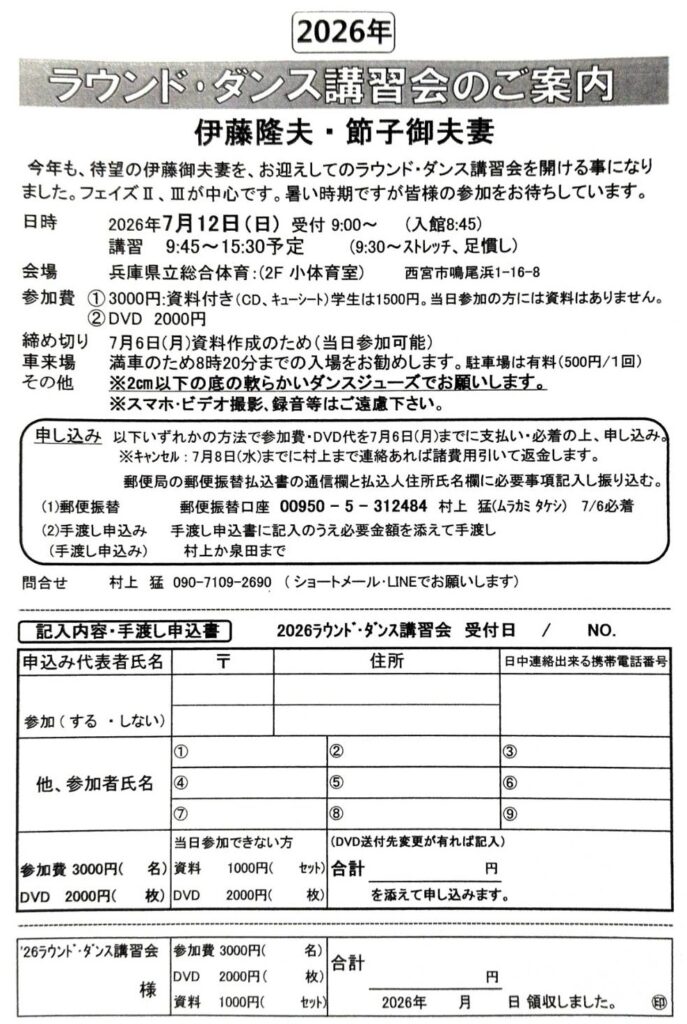 2026年
ラウンド・ダンス講習会のご案内
伊藤隆夫・節子御夫妻
今年も、待望の伊藤御夫妻を、お迎えしてのラウンド・ダンス講習会を開ける事になり
ました。フェイズⅡ、Ⅲが中心です。暑い時期ですが皆様の参加をお待ちしています。
日時 2026年7月12日(日) 受付 9:00～ (入館8:45)
講習 9:45～15:30予定 (9:30～ストレッチ、足慣し)
会場 兵庫県立総合体育:(2F 小体育室) 西宮市鳴尾浜1-16-8
参加費 ①3000円:資料付き(CD、キューシート)学生は1500円。当日参加の方には資料はありません。
②DVD 2000円
締め切り 7月6日(月)資料作成のため(当日参加可能)
車来場 満車のため8時20分までの入場をお勧めします。駐車場は有料(500円/1回)
その他 ※2cm以下の底の軟らかいダンスジューズでお願いします。
※スマホ・ビデオ撮影、録音等はご遠慮下さい。
申し込み 以下いずれかの方法で参加費・DVD代を7月6日(月)までに支払い・必着の上、申し込み。
※キャンセル：7月8日(水)までに村上まで連絡あれば諸費用引いて返金します。
郵便局の郵便振替払込書の通信欄と払込人住所氏名欄に必要事項記入し振り込む。
(1)郵便振替 郵便振替口座 00950－5－312484 村上 猛(ムラカミ タケシ) 7/6必着
(2)手渡し申込み 手渡し申込書に記入のうえ必要金額を添えて手渡し
(手渡し申込み) 村上か泉田まで
問合せ 村上 猛 090-7109-2690 (ショートメール・LINEでお願いします)
記入内容・手渡し申込書 2026ラウンド・ダンス講習会 受付日 / NO.
申込み代表者氏名 〒 住所 日中連絡出来る携帯電話番号
参加(する ・しない)
他、参加者氏名
① ② ③
④ ⑤ ⑥
⑦ ⑧ ⑨
当日参加できない方 (DVD送付先変更が有れば記入)
参加費 3000円( 名) 資料 1000円( セット) 合計 円
DVD 2000円( 枚) DVD 2000円( 枚) を添えて申し込みます。
'26ラウンド・ダンス講習会 参加費 3000円( 名) 合計
様 DVD 2000円( 枚) 円
資料 1000円( セット) 2026年 月 日 領収しました。 ㊞